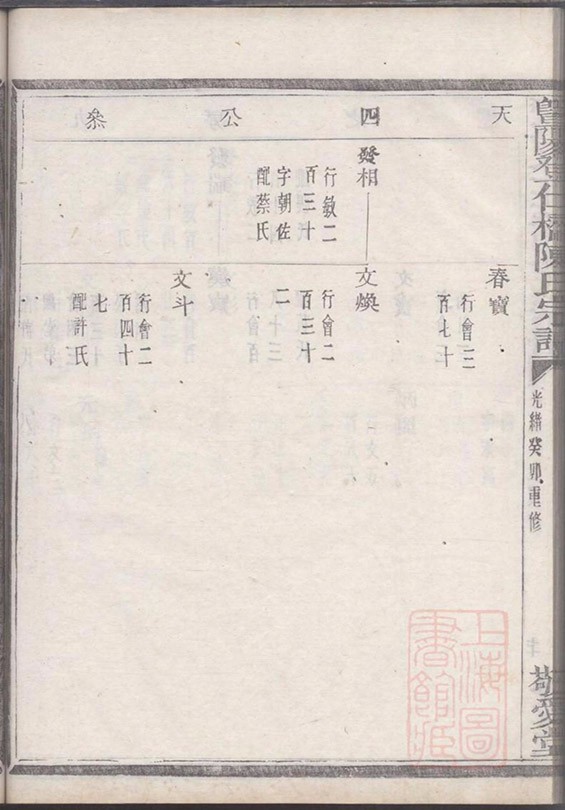 天
四
公
叅
春寶
行會三
百七十
發相
行敏二
百三十
字朝佐
配蔡氏
文煥
行會二
百三十
二
文斗
行會二
百四十
七
配許氏
仁橋陳氏宗譜
光緒癸卯重修
敬愛堂
上海圖
書館藏